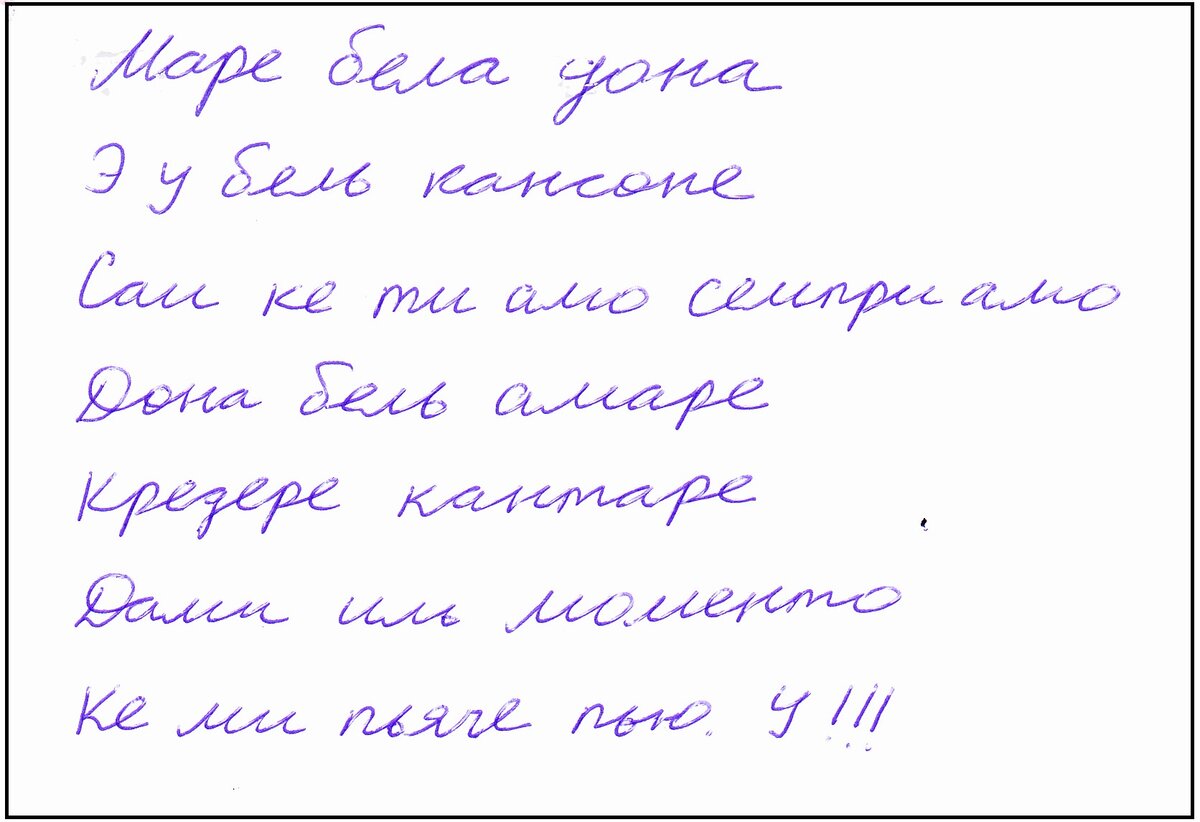 Маре бела дона
Э у бель кансоне
Саи ке ти амо семпри амо
Дона бель амаре
Кредере кантаре
Дами иль моменто
Ке ми пьяче пью. У!!!